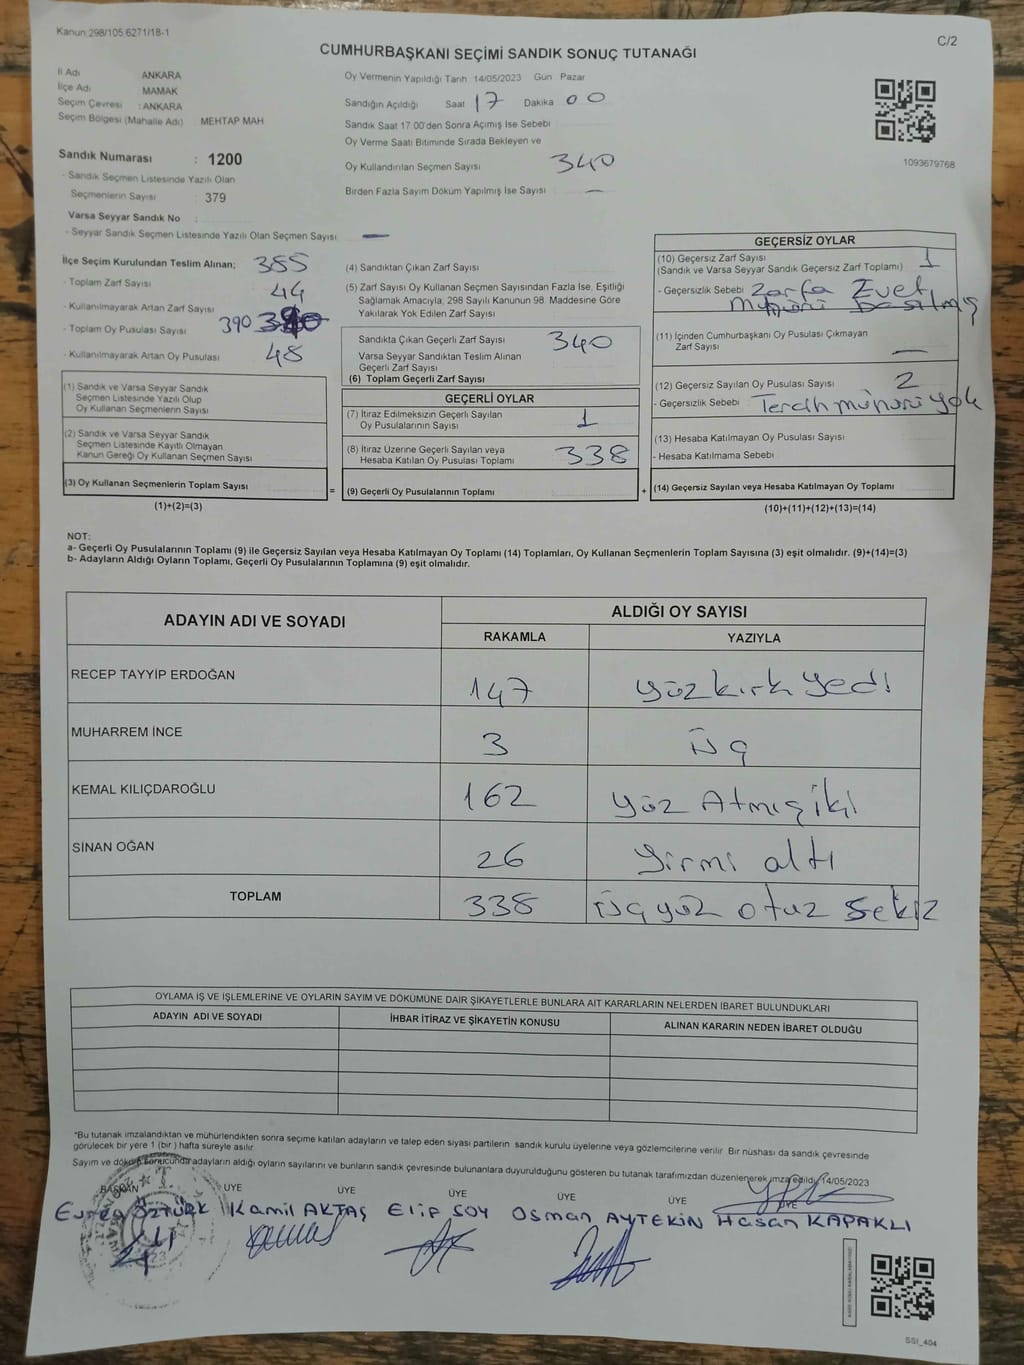 Kanun:298/105 6271/18-1
C/2
CUMHURBAŞKANI SEÇİMİ SANDIK SONUÇ TUTANAĞI
İl Adı ANKARA
İlçe Adı MAMAK
Seçim Çevresi : ANKARA
Seçim Bölgesi (Mahalle Adı) MEHTAP MAH
Sandık Numarası : 1200
- Sandık Seçmen Listesinde Yazılı Olan
Seçmenlerin Sayısı : 379
Varsa Seyyar Sandık No :
- Seyyar Sandık Seçmen Listesinde Yazılı Olan Seçmen Sayısı —
Oy Vermenin Yapıldığı Tarih 14/05/2023 Gün Pazar
Sandığın Açıldığı Saat 17 Dakika 00
Sandık Saat 17.00'den Sonra Açımış İse Sebebi
Oy Verme Saati Bitiminde Sırada Bekleyen ve
Oy Kullandırılan Seçmen Sayısı 340
Birden Fazla Sayım Döküm Yapılmış İse Sayısı —
1093679768
İlçe Seçim Kurulundan Teslim Alınan; 385
- Toplam Zarf Sayısı 44
- Kullanılmayarak Artan Zarf Sayısı
- Toplam Oy Pusulası Sayısı 390
- Kullanılmayarak Artan Oy Pusulası 48
(1) Sandık ve Varsa Seyyar Sandık
Seçmen Listesinde Yazılı Olup
Oy Kullanan Seçmenlerin Sayısı
(2) Sandık ve Varsa Seyyar Sandık
Seçmen Listesinde Kayıtlı Olmayan
Kanun Gereği Oy Kullanan Seçmen Sayısı
(3) Oy Kullanan Seçmenlerin Toplam Sayısı
(1)+(2)=(3)
(4) Sandıktan Çıkan Zarf Sayısı
(5) Zarf Sayısı Oy Kullanan Seçmen Sayısından Fazla İse, Eşitliği
Sağlamak Amacıyla, 298 Sayılı Kanunun 98. Maddesine Göre
Yakılarak Yok Edilen Zarf Sayısı
Sandıkta Çıkan Geçerli Zarf Sayısı 340
Varsa Seyyar Sandıktan Teslim Alınan
Geçerli Zarf Sayısı
(6) Toplam Geçerli Zarf Sayısı
GEÇERLİ OYLAR
(7) İtiraz Edilmeksizin Geçerli Sayılan
Oy Pusulalarının Sayısı 1
(8) İtiraz Üzerine Geçerli Sayılan veya
Hesaba Katılan Oy Pusulası Toplamı 338
= (9) Geçerli Oy Pusulalarının Toplamı +
GEÇERSİZ OYLAR
(10) Geçersiz Zarf Sayısı 1
(Sandık ve Varsa Seyyar Sandık Geçersiz Zarf Toplamı)
- Geçersizlik Sebebi Zarfa Evet
Mührünü basılmış
(11) İçinden Cumhurbaşkanı Oy Pusulası Çıkmayan
Zarf Sayısı —
(12) Geçersiz Sayılan Oy Pusulası Sayısı 2
- Geçersizlik Sebebi Tercih mührü yok
(13) Hesaba Katılmayan Oy Pusulası Sayısı
- Hesaba Katılmama Sebebi
(14) Geçersiz Sayılan veya Hesaba Katılmayan Oy Toplamı
(10)+(11)+(12)+(13)=(14)
NOT:
a- Geçerli Oy Pusulalarının Toplamı (9) ile Geçersiz Sayılan veya Hesaba Katılmayan Oy Toplamı (14) Toplamları, Oy Kullanan Seçmenlerin Toplam Sayısına (3) eşit olmalıdır. (9)+(14)=(3)
b- Adayların Aldığı Oyların Toplamı, Geçerli Oy Pusulalarının Toplamına (9) eşit olmalıdır.
ADAYIN ADI VE SOYADI ALDIĞI OY SAYISI
RAKAMLA YAZIYLA
RECEP TAYYİP ERDOĞAN 147 yüz kırk yedi
MUHARREM İNCE 3 üç
KEMAL KILIÇDAROĞLU 162 yüz Atmış iki
SİNAN OĞAN 26 yirmi altı
TOPLAM 338 üç yüz otuz sekiz
OYLAMA İŞ VE İŞLEMLERİNE VE OYLARIN SAYIM VE DÖKÜMÜNE DAİR ŞİKAYETLERLE BUNLARA AİT KARARLARIN NELERDEN İBARET BULUNDUKLARI
ADAYIN ADI VE SOYADI İHBAR İTİRAZ VE ŞİKAYETİN KONUSU ALINAN KARARIN NEDEN İBARET OLDUĞU
*Bu tutanak imzalandıktan ve mühürlendikten sonra seçime katılan adayların ve talep eden siyasi partilerin sandık kurulu üyelerine veya gözlemcilerine verilir. Bir nüshası da sandık çevresinde
görülecek bir yere 1 (bir ) hafta süreyle asılır.
Sayım ve döküm sonucunda adayların aldığı oyların sayılarını ve bunların sandık çevresinde bulunanlara duyurulduğunu gösteren bu tutanak tarafımızdan düzenlenerek imza edildi. 14/05/2023
BAŞKAN ÜYE ÜYE ÜYE ÜYE ÜYE ÜYE
Evren ÖZTÜRK Kamil AKTAŞ Elif SOY Osman AYTEKİN Hasan KAPAKLI
SSI_404